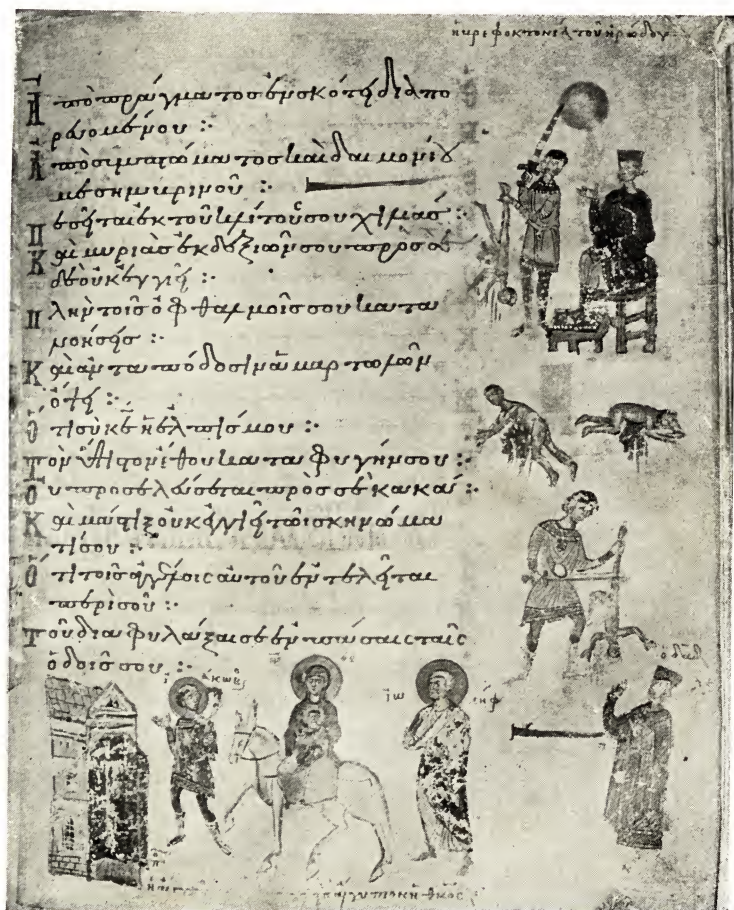 ἡ βρεφοκτονεία τοῦ ἡρώδου
Ἀπὸ πράγματος ἐν σκότει διαπο
ρευομένου :·
Ἀπὸ συμπτώματος καὶ δαιμονίου
μεσημβρινοῦ :·
Πεσεῖται ἐκ τοῦ κλίτους σου χιλιάς :·
Καὶ μυριὰς ἐκ δεξιῶν σου πρὸς σὲ
δὲ οὐκ ἐγγιεῖ :·
Πλὴν τοῖς ὀφθαλμοῖς σου κατα
νοήσεις :·
Καὶ ἀνταπόδοσιν ἁμαρτωλῶν
ὄψει :·
Ὅτι σὺ κε ἡ ἐλπίς μου :·
Τὸν ὕψιστον ἔθου καταφυγήν σου :·
Οὐ προσελεύσεται πρὸς σὲ κακά :·
Καὶ μάστιξ οὐκ ἐγγιεῖ τῶ σκηνώμα
τί σου :·
Ὅτι τοῖς ἀγγέλοις αὐτοῦ ἐντελεῖται
περὶ σοῦ :·
Τοῦ διαφυλάξαι σε ἐν πάσαις ταῖς
ὁδοῖς σου :·
ἰάκωβος
ἰωσηφ